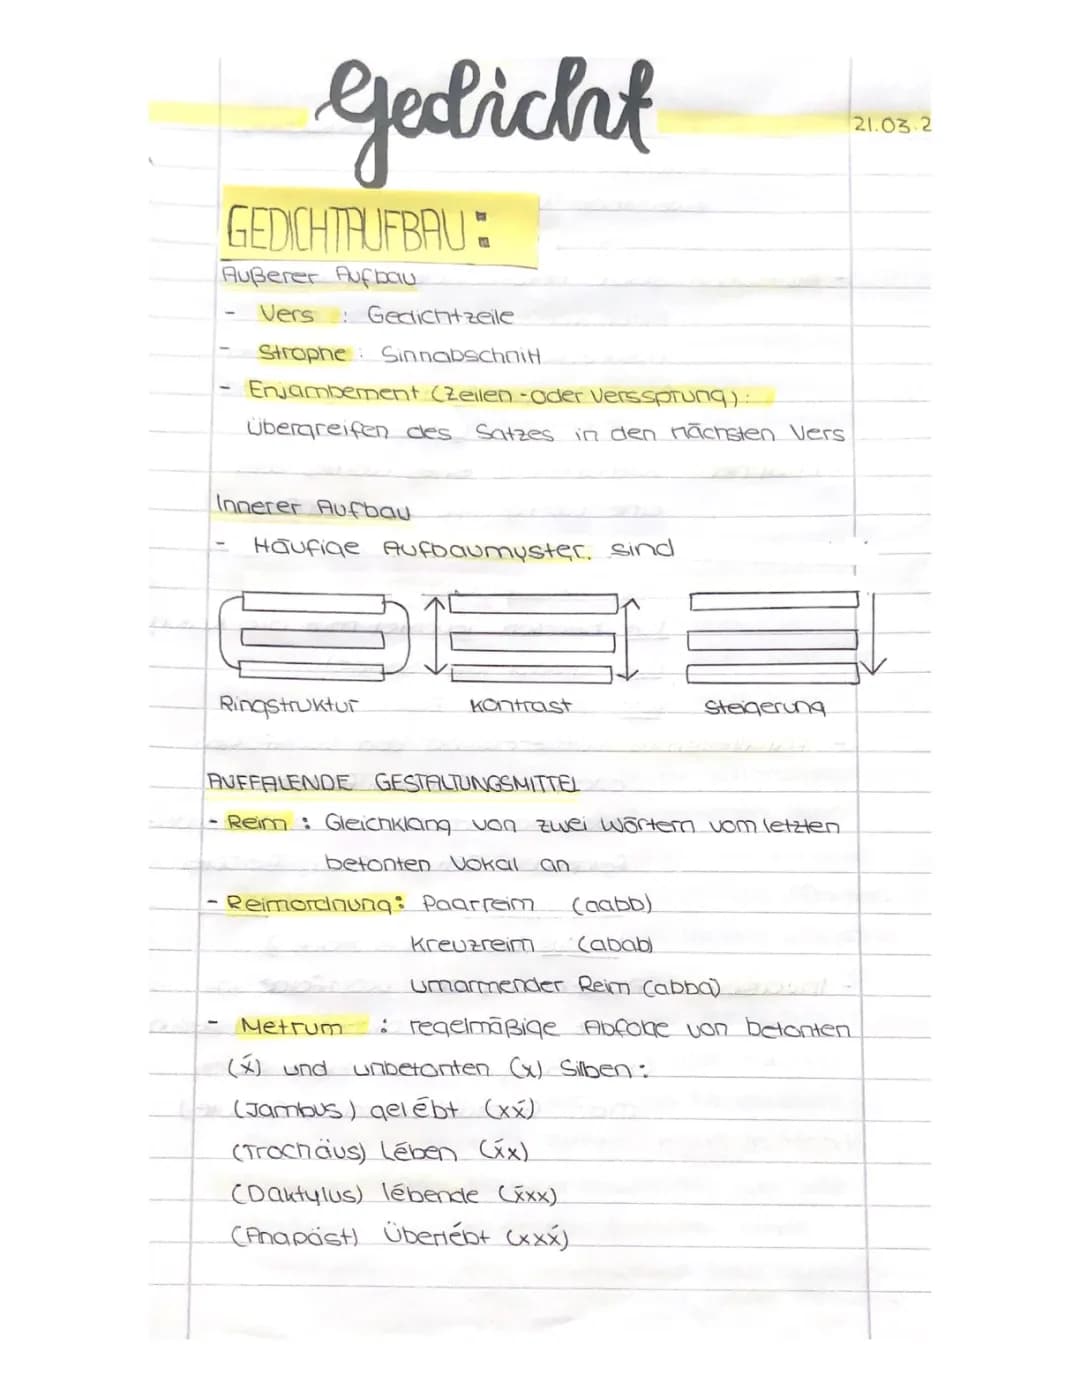 Gedicht
21.03.2
GEDICHTAUFBAU:
Äußerer Aufbau
- Vers : Gedichtzeile
- Strophe : Sinnabschnitt
- Enjambement (Zeilen-oder Verssprung):
Übergreifen des Satzes in den nächsten Vers
Innerer Aufbau
- Häufige Aufbaumuster. sind
Ringstruktur Kontrast Steigerung
AUFFALENDE GESTALTUNGSMITTEL
- Reim : Gleichklang von zwei Wörtern vom letzten
betonten Vokal an
- Reimordnung: Paarreim (aabb)
Kreuzreim (abab)
umarmender Reim (abba)
- Metrum : regelmäßige Abfolge von betonten
(x́) und unbetonten (x) Silben:
(Jambus) gelébt (xx́)
(Trochäus) Lében (x́x)
(Daktylus) lébende (x́xx)
(Anapäst) Überlébt (xxx́)